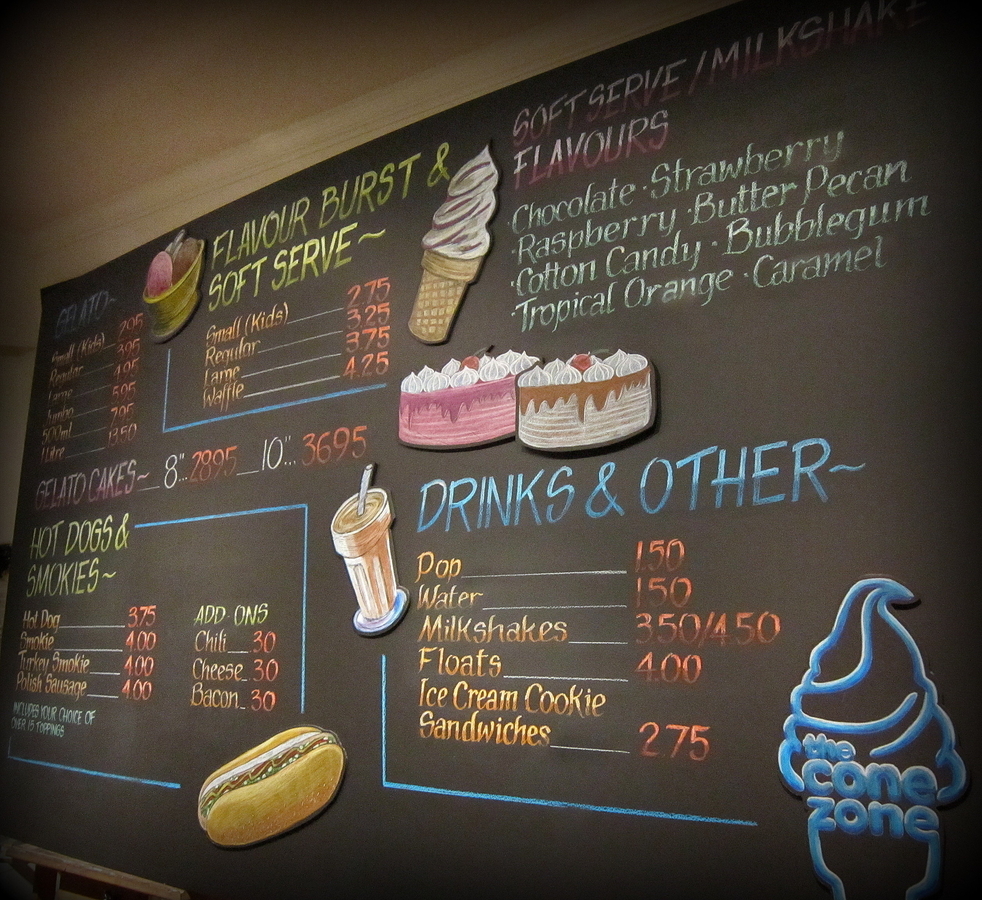 GELATO~
Small (Kids) 2.95
Regular 3.95
Large 4.95
Jumbo 5.95
500ml 7.95
1 Litre 13.50
FLAVOUR BURST &
SOFT SERVE~
Small (Kids) 2.75
Regular 3.25
Large 3.75
Waffle 4.25
GELATO CAKES~ 8"...2895 10"...3695
HOT DOGS &
SMOKIES~
Hot Dog 3.75
Smokie 4.00
Turkey Smokie 4.00
Polish Sausage 4.00
INCLUDES YOUR CHOICE OF
OVER 15 TOPPINGS
ADD·ONS
Chili 30
Cheese 30
Bacon 30
SOFT SERVE / MILKSHAKE
FLAVOURS
·Chocolate ·Strawberry
·Raspberry ·Butter Pecan
·Cotton Candy ·Bubblegum
·Tropical Orange ·Caramel
DRINKS & OTHER~
Pop 1.50
Water 1.50
Milkshakes 3.50/4.50
Floats 4.00
Ice Cream Cookie
Sandwiches 2.75
the
cone
zone